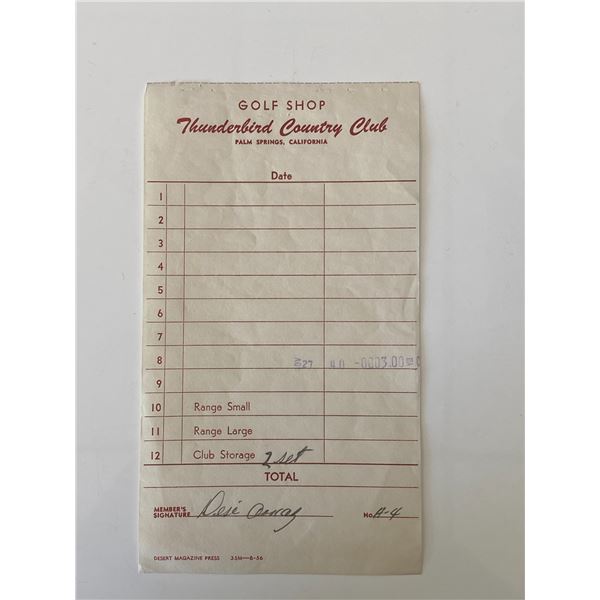 GOLF SHOP
Thunderbird Country Club
PALM SPRINGS, CALIFORNIA
Date
1
2
3
4
5
6
7
8 27 40 -0003.00
9
10 Range Small
11 Range Large
12 Club Storage 2 set
TOTAL
MEMBER'S
SIGNATURE Desi Arnaz No. A-4
DESERT MAGAZINE PRESS 35M—8-56